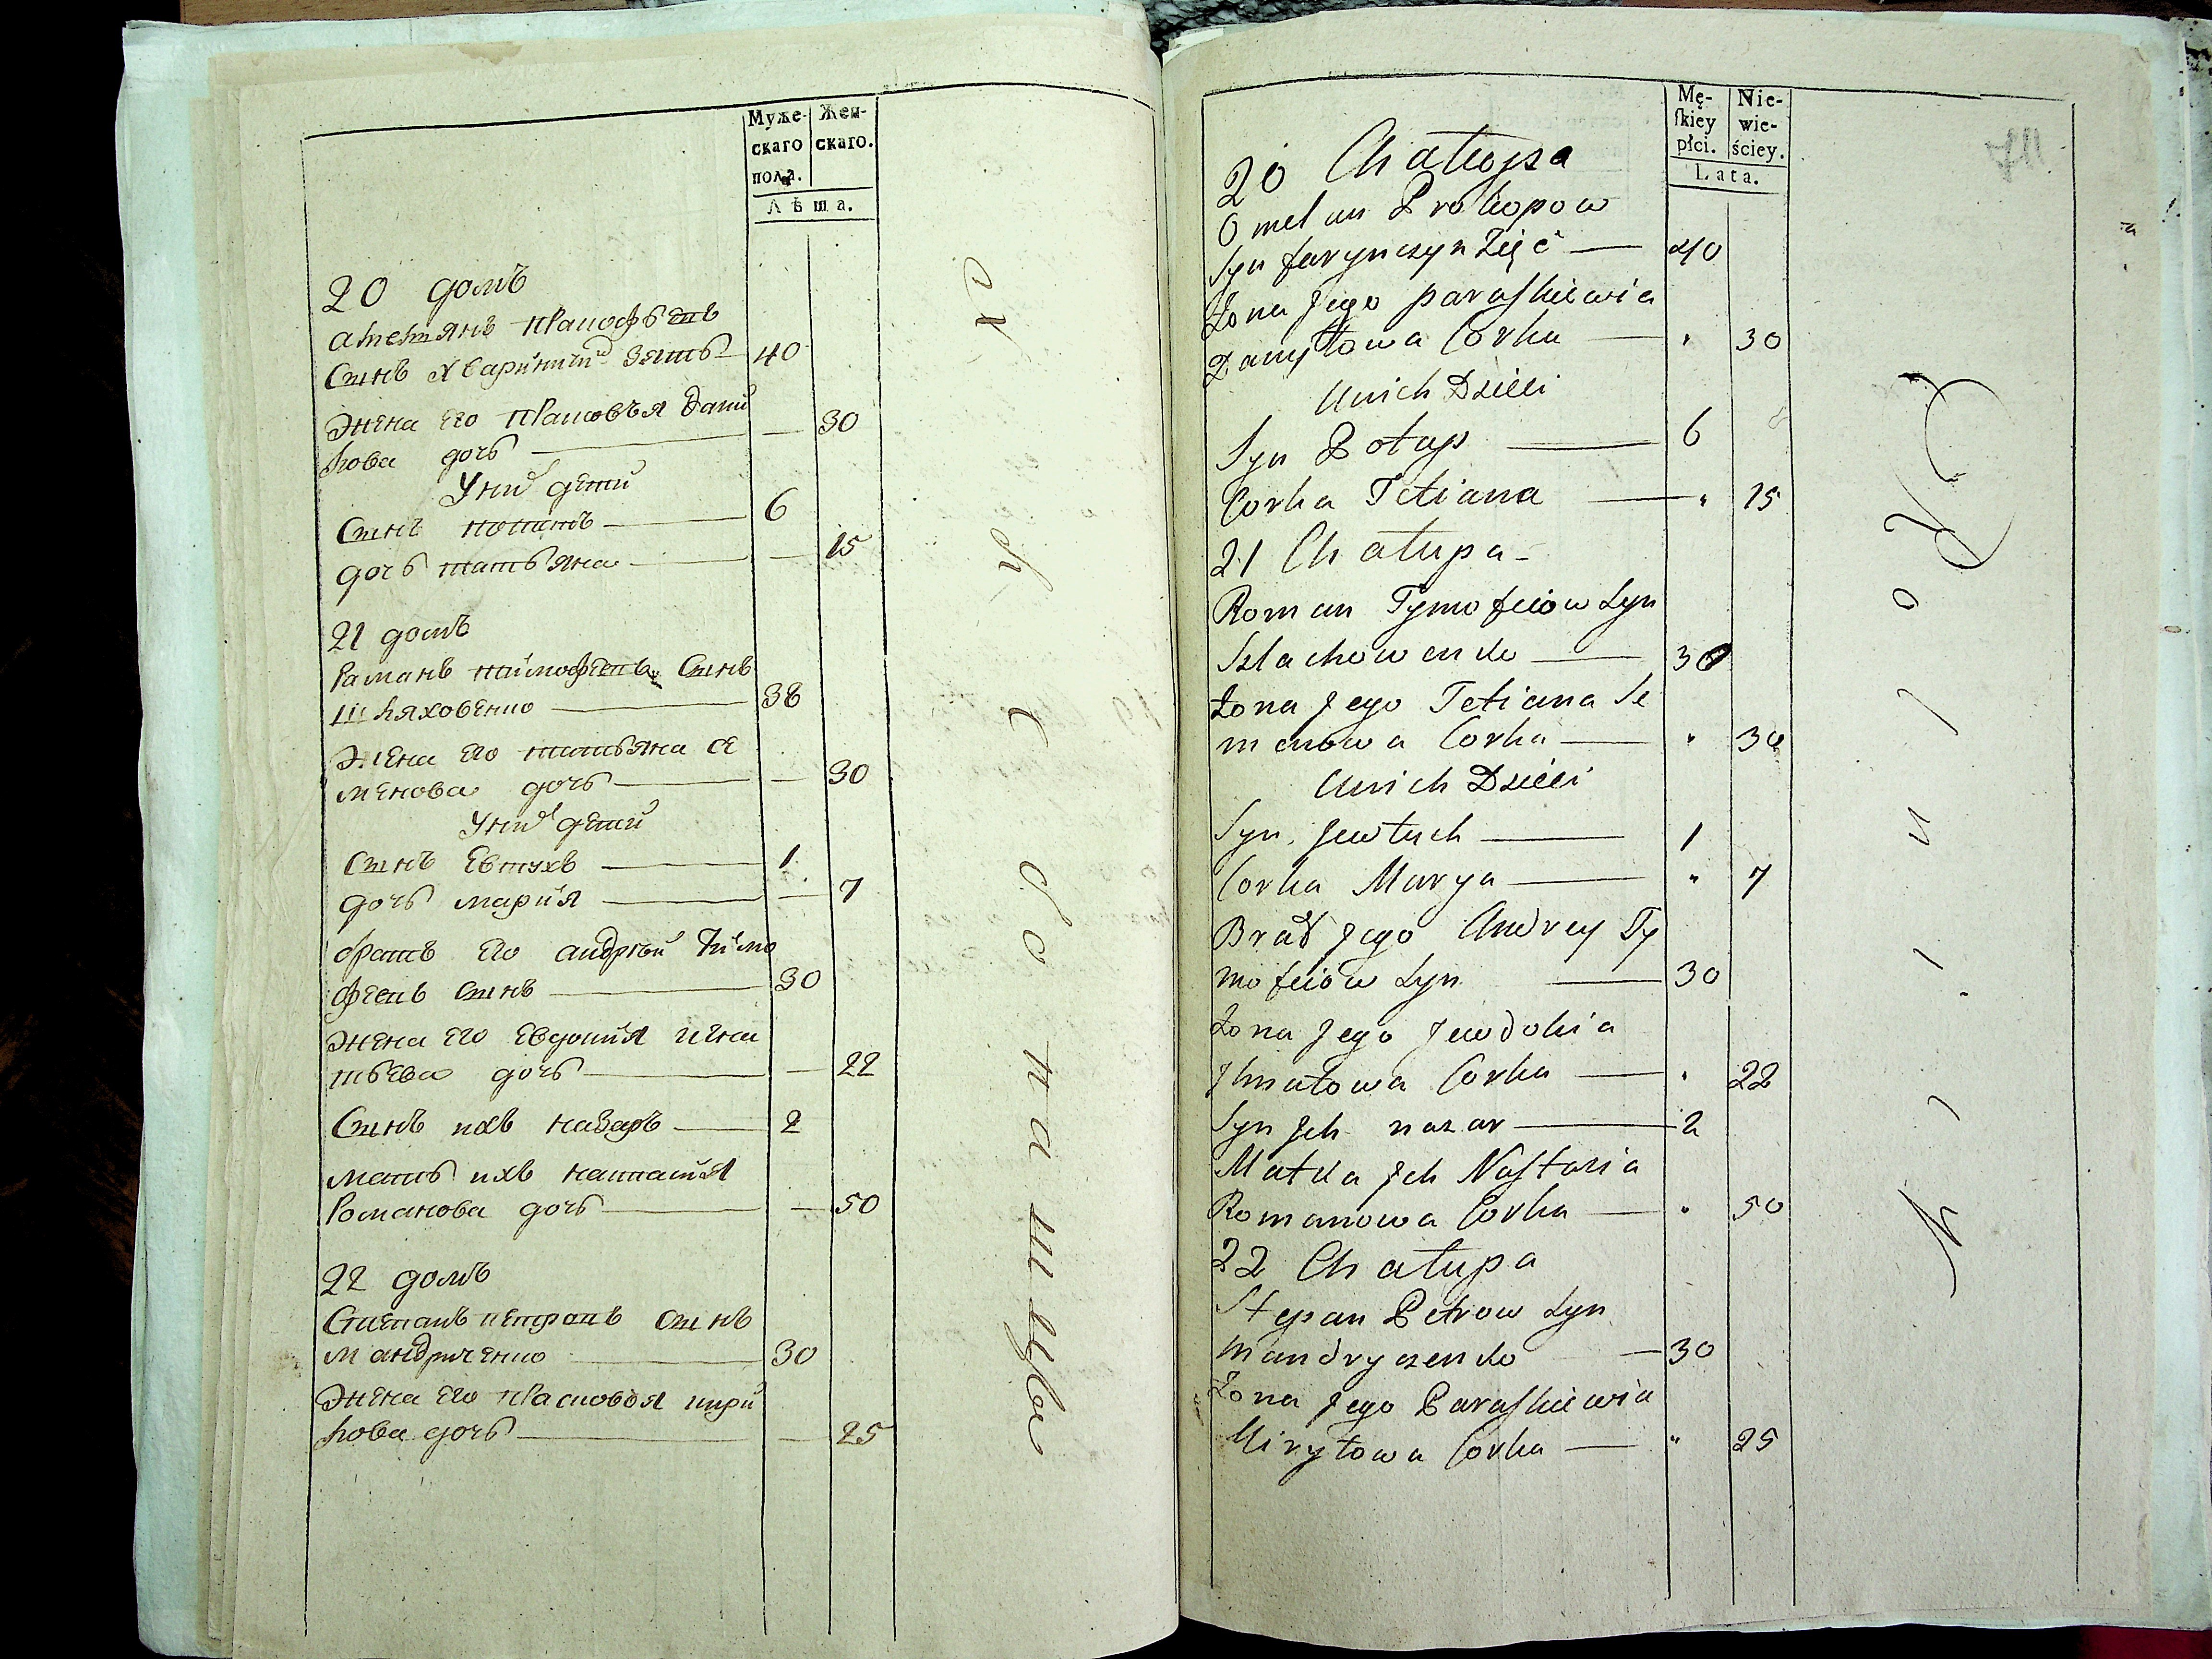 Муже-
скаго
пола.
Жен-
скаго.
Лѣта.
20 домъ
Сынъ Хваринчин зять — 40
Жена его Прасковья Дани
лова дочь — — 30
У них дети
Сынъ Потапъ — 6
дочь татьяна — — 15
21 домъ
Раманъ тимофеевъ Сынъ
Шляховенко — 38
Жена его татьяна Се
менова дочь — — 30
У них дети
Сынъ Евтухъ — 1
дочь мария — — 7
братъ его андрѣй Тимо
феевъ Сынъ — 30
Жена его Евдокия игна
тьева дочь — — 22
Сынъ ихъ назаръ — 2
мать ихъ настасия
Романова дочь — — 50
22 домъ
Степанъ петровъ Сынъ
мандриченко — 30
Жена его Прасковья кири
лова дочь — — 25
Mę-
ſkiey
płci.
Nie-
wie-
ściey.
Lata.
20 Chałupa
Omelan Prokopow
Syn farynczyn Zięć — 40
Żona Jego paraſkiewia
Danyłowa Corka — " 30
Unich Dzieci
Syn Potap — 6
Corka Tetiana — " 15
21 Chałupa
Roman Tymofeiow Syn
Szlachowenko — 38
Żona Jego Tetiana Se
menowa Corka — " 30
Unich Dzieci
Syn Jewtuch — 1
Corka Marya — " 7
Brat Jego Andrey Ty
mofeiow Syn — 30
Żona Jego Jewdokia
Jhnatowa Corka — " 22
Syn Jch nazar — 2
Matka Jch Naſtazia
Romanowa Corka — " 50
22 Chałupa
Stepan Petrow Syn
mandryczenko — 30
Żona Jego Paraſkiewia
Kiryłowa Corka — " 25